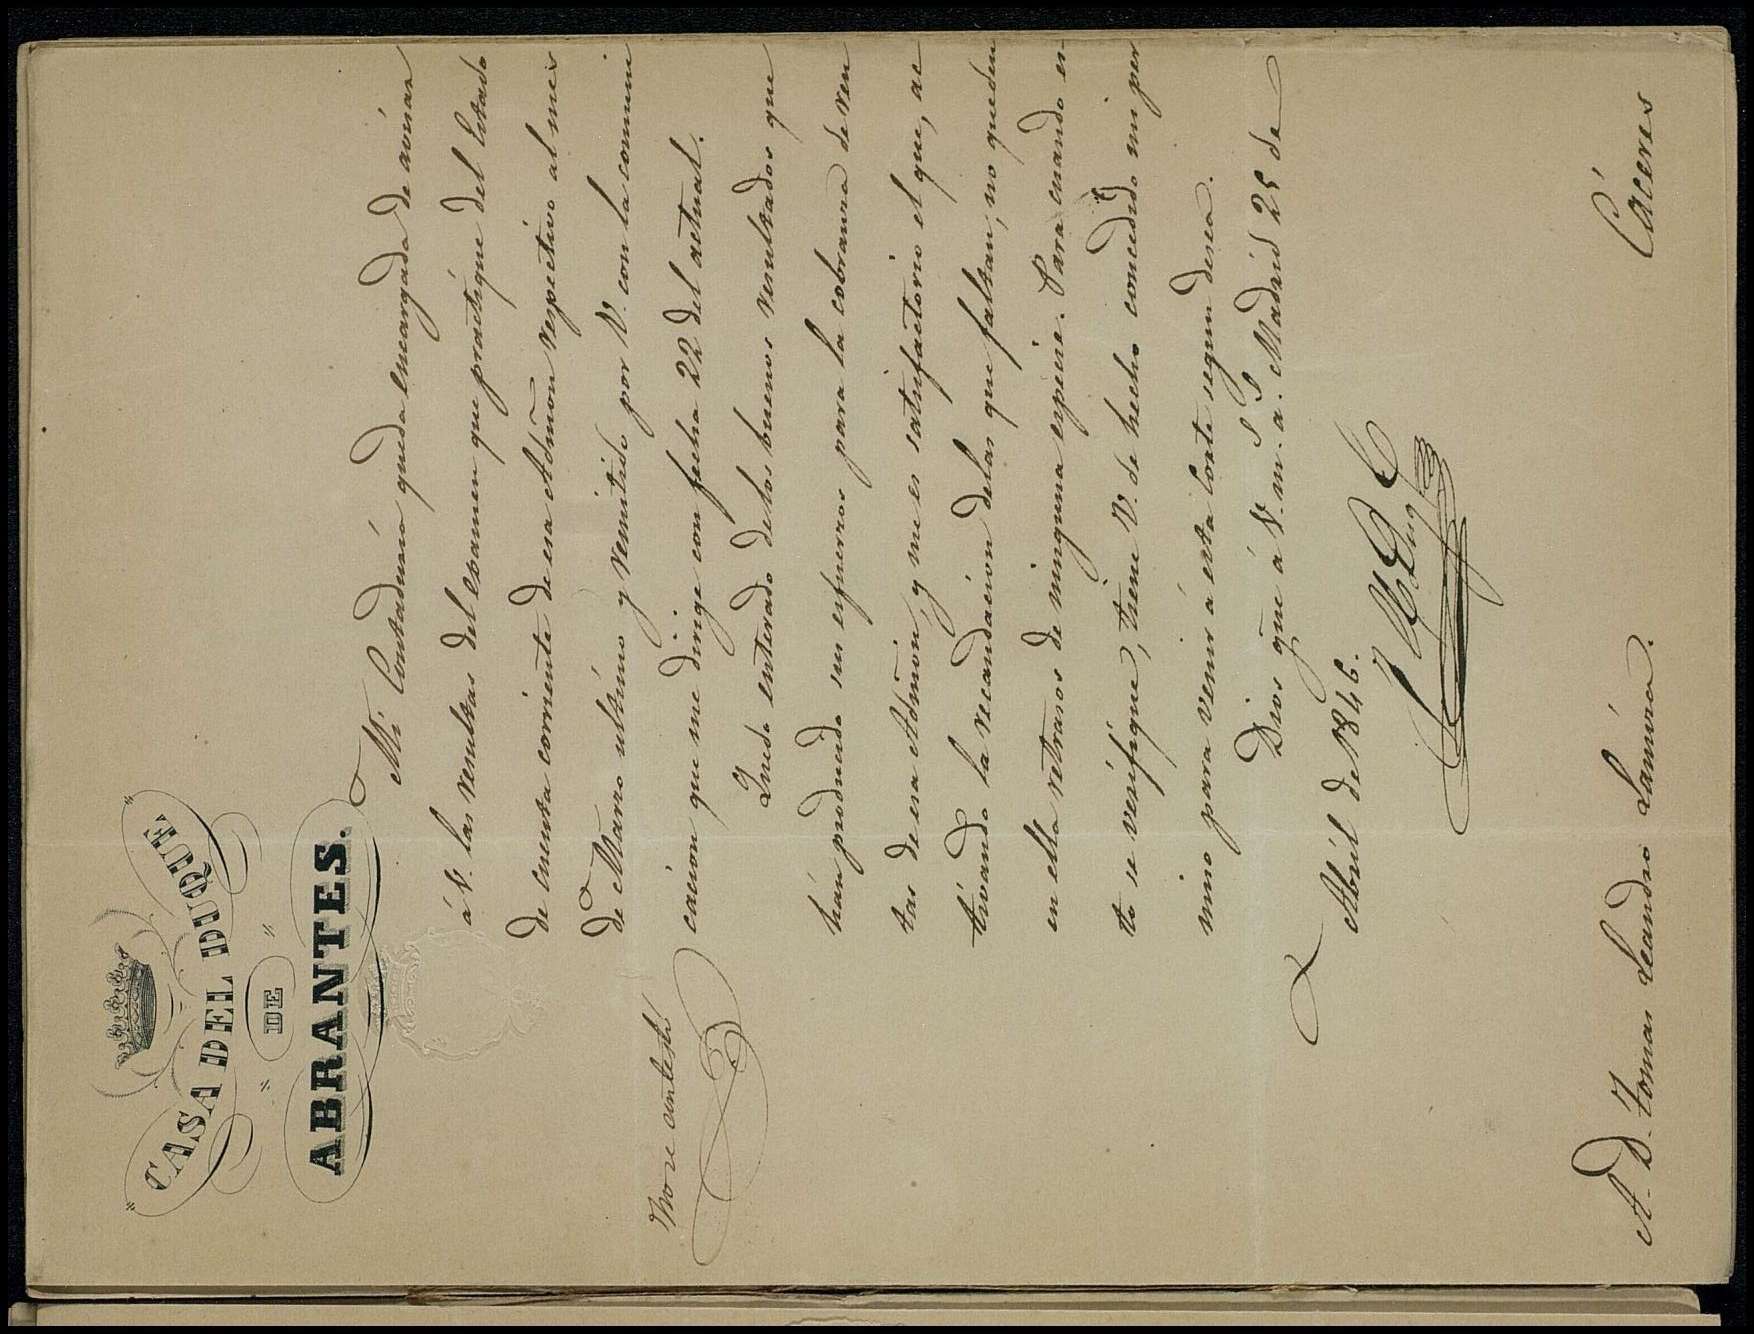 CASA DEL DUQUE
DE
ABRANTES.
Mi Contaduria queda encargada de avisar
á V. las resultas del examen que practique del Estado
de cuenta corriente de esa Admōn respectivo al mes
de Marzo ultimo y remitido por V. con la comuni
cacion que me dirige con fecha 22 del actual.
No se contestó
Quedo enterado de los buenos resultados que
hán producido sus esfuerzos para la cobranza de ren
tas de esa Admōn, y me es satisfactorio el que, ac
tivando la recaudacion de las que faltan, no queden
en ella retrasos de ninguna especie. Para cuando es
to se verifique, tiene V. de hecho concedido mi per
miso para venir á esta Corte segun desea.
Dios gue á V. m.s a.s Madrid 25 de
Abril de 1846.
El Duq
A. D. Tomas Leandro Lamira.
Cáceres